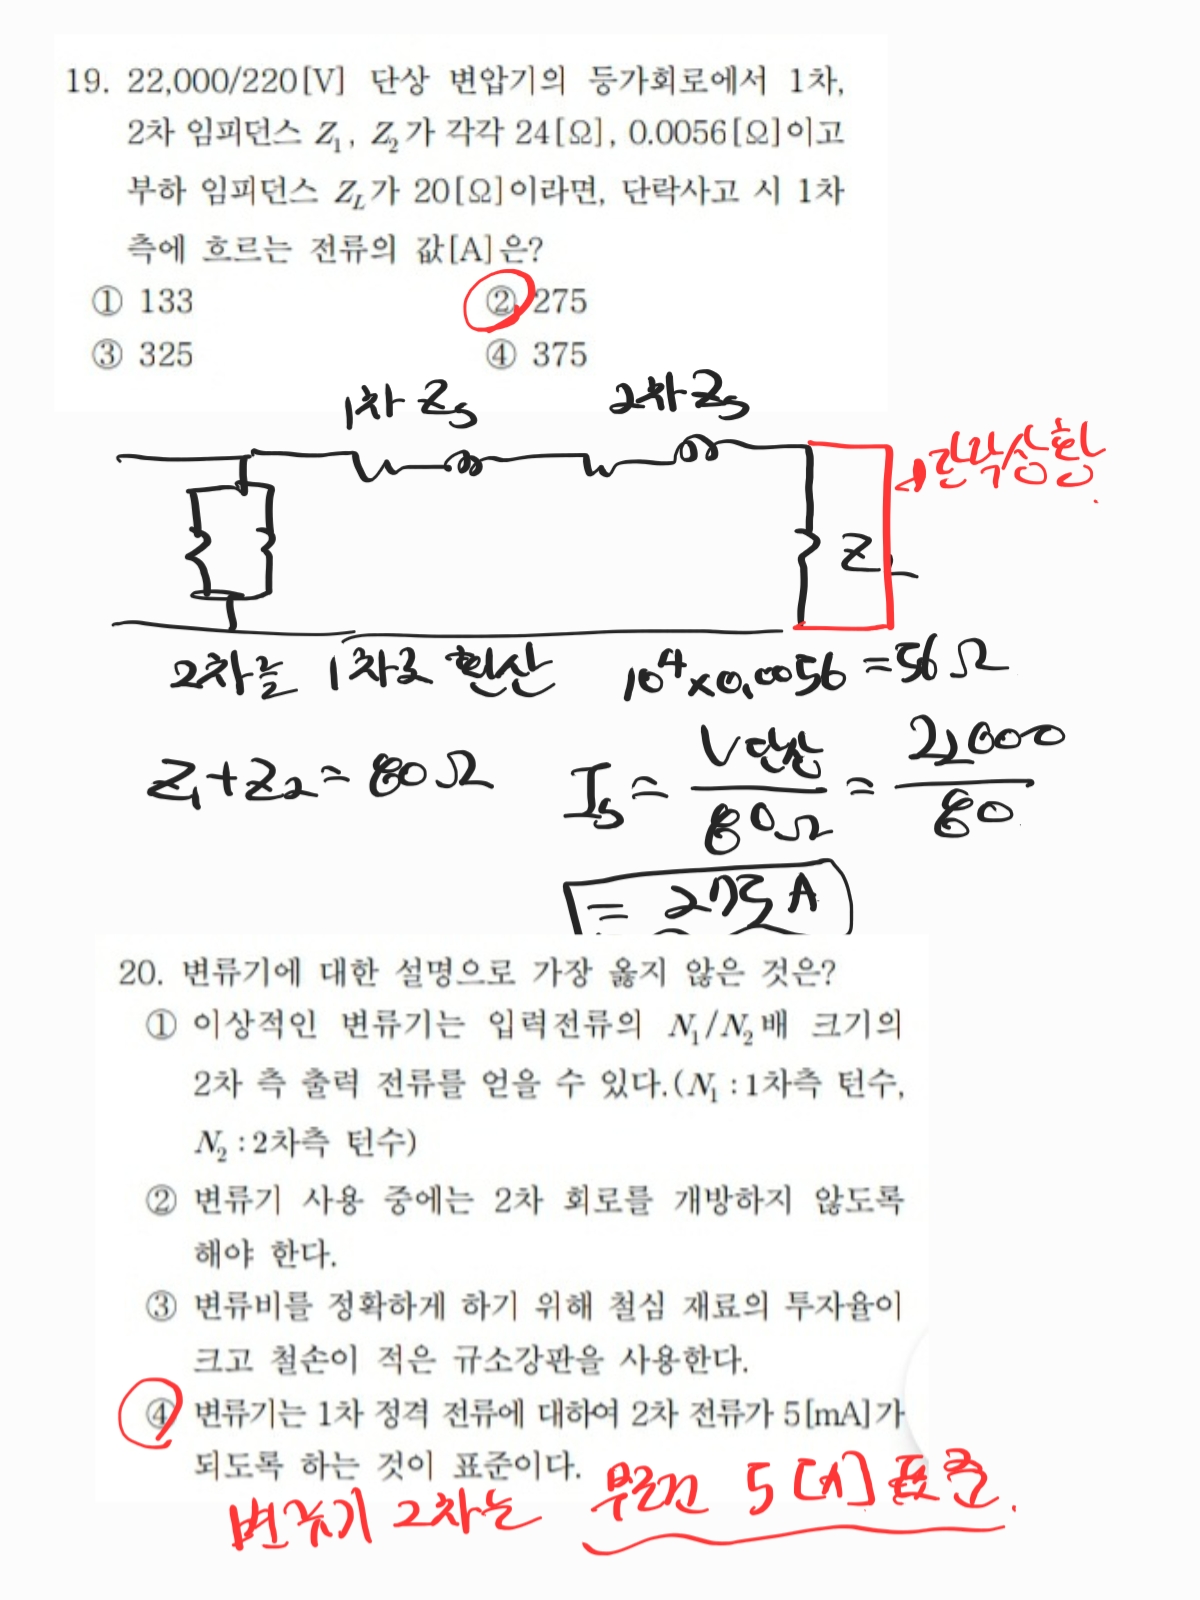 19. 22,000/220[V] 단상 변압기의 등가회로에서 1차,
2차 임피던스 Z₁, Z₂가 각각 24[Ω], 0.0056[Ω]이고
부하 임피던스 Z_L가 20[Ω]이라면, 단락사고 시 1차
측에 흐르는 전류의 값[A]은?
① 133 ② 275
③ 325 ④ 375
1차 Zs 2차 Zs
단락상황.
Z_L
2차를 1차로 환산 10⁴×0.0056 = 56Ω
Z₁+Z₂ = 80Ω Is = V단상/80Ω = 22000/80
= 275A
20. 변류기에 대한 설명으로 가장 옳지 않은 것은?
① 이상적인 변류기는 입력전류의 N₁/N₂배 크기의
2차 측 출력 전류를 얻을 수 있다.(N₁ : 1차측 턴수,
N₂ : 2차측 턴수)
② 변류기 사용 중에는 2차 회로를 개방하지 않도록
해야 한다.
③ 변류비를 정확하게 하기 위해 철심 재료의 투자율이
크고 철손이 적은 규소강판을 사용한다.
④ 변류기는 1차 정격 전류에 대하여 2차 전류가 5[mA]가
되도록 하는 것이 표준이다.
변류기 2차는 무조건 5[A] 표준.